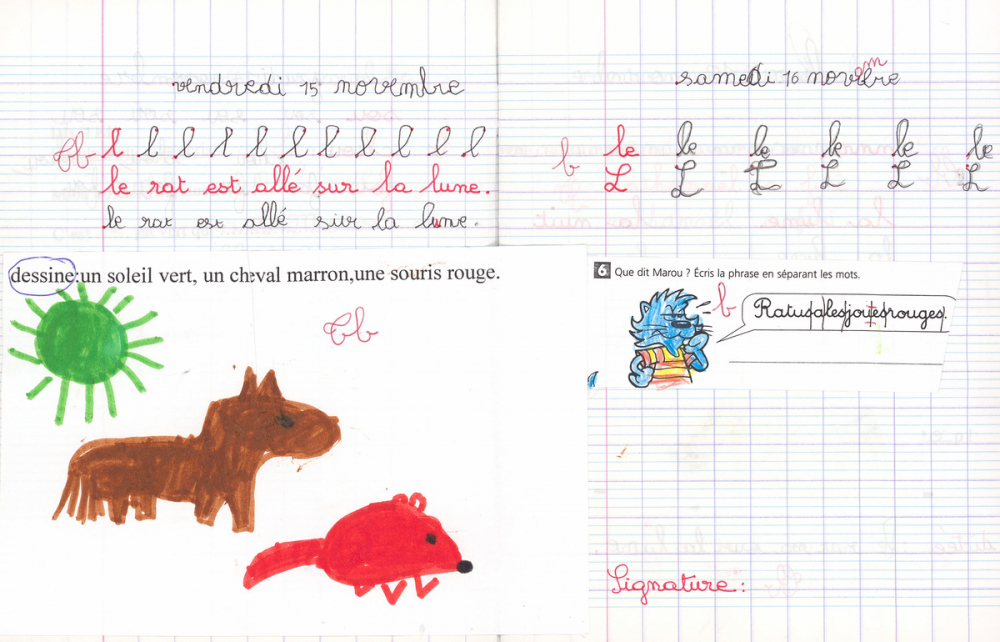 vendredi 15 novembre
Bb l l l l l l l l l l l
le rat est allé sur la lune.
le rat est allé sur la lune.
dessine:un soleil vert, un cheval marron,une souris rouge.
Tb
samedi 16 novembre
b le le le le le le
L L L L L L
6 Que dit Marou ? Écris la phrase en séparant les mots.
b Ratusalesjouesrouges.
Signature :